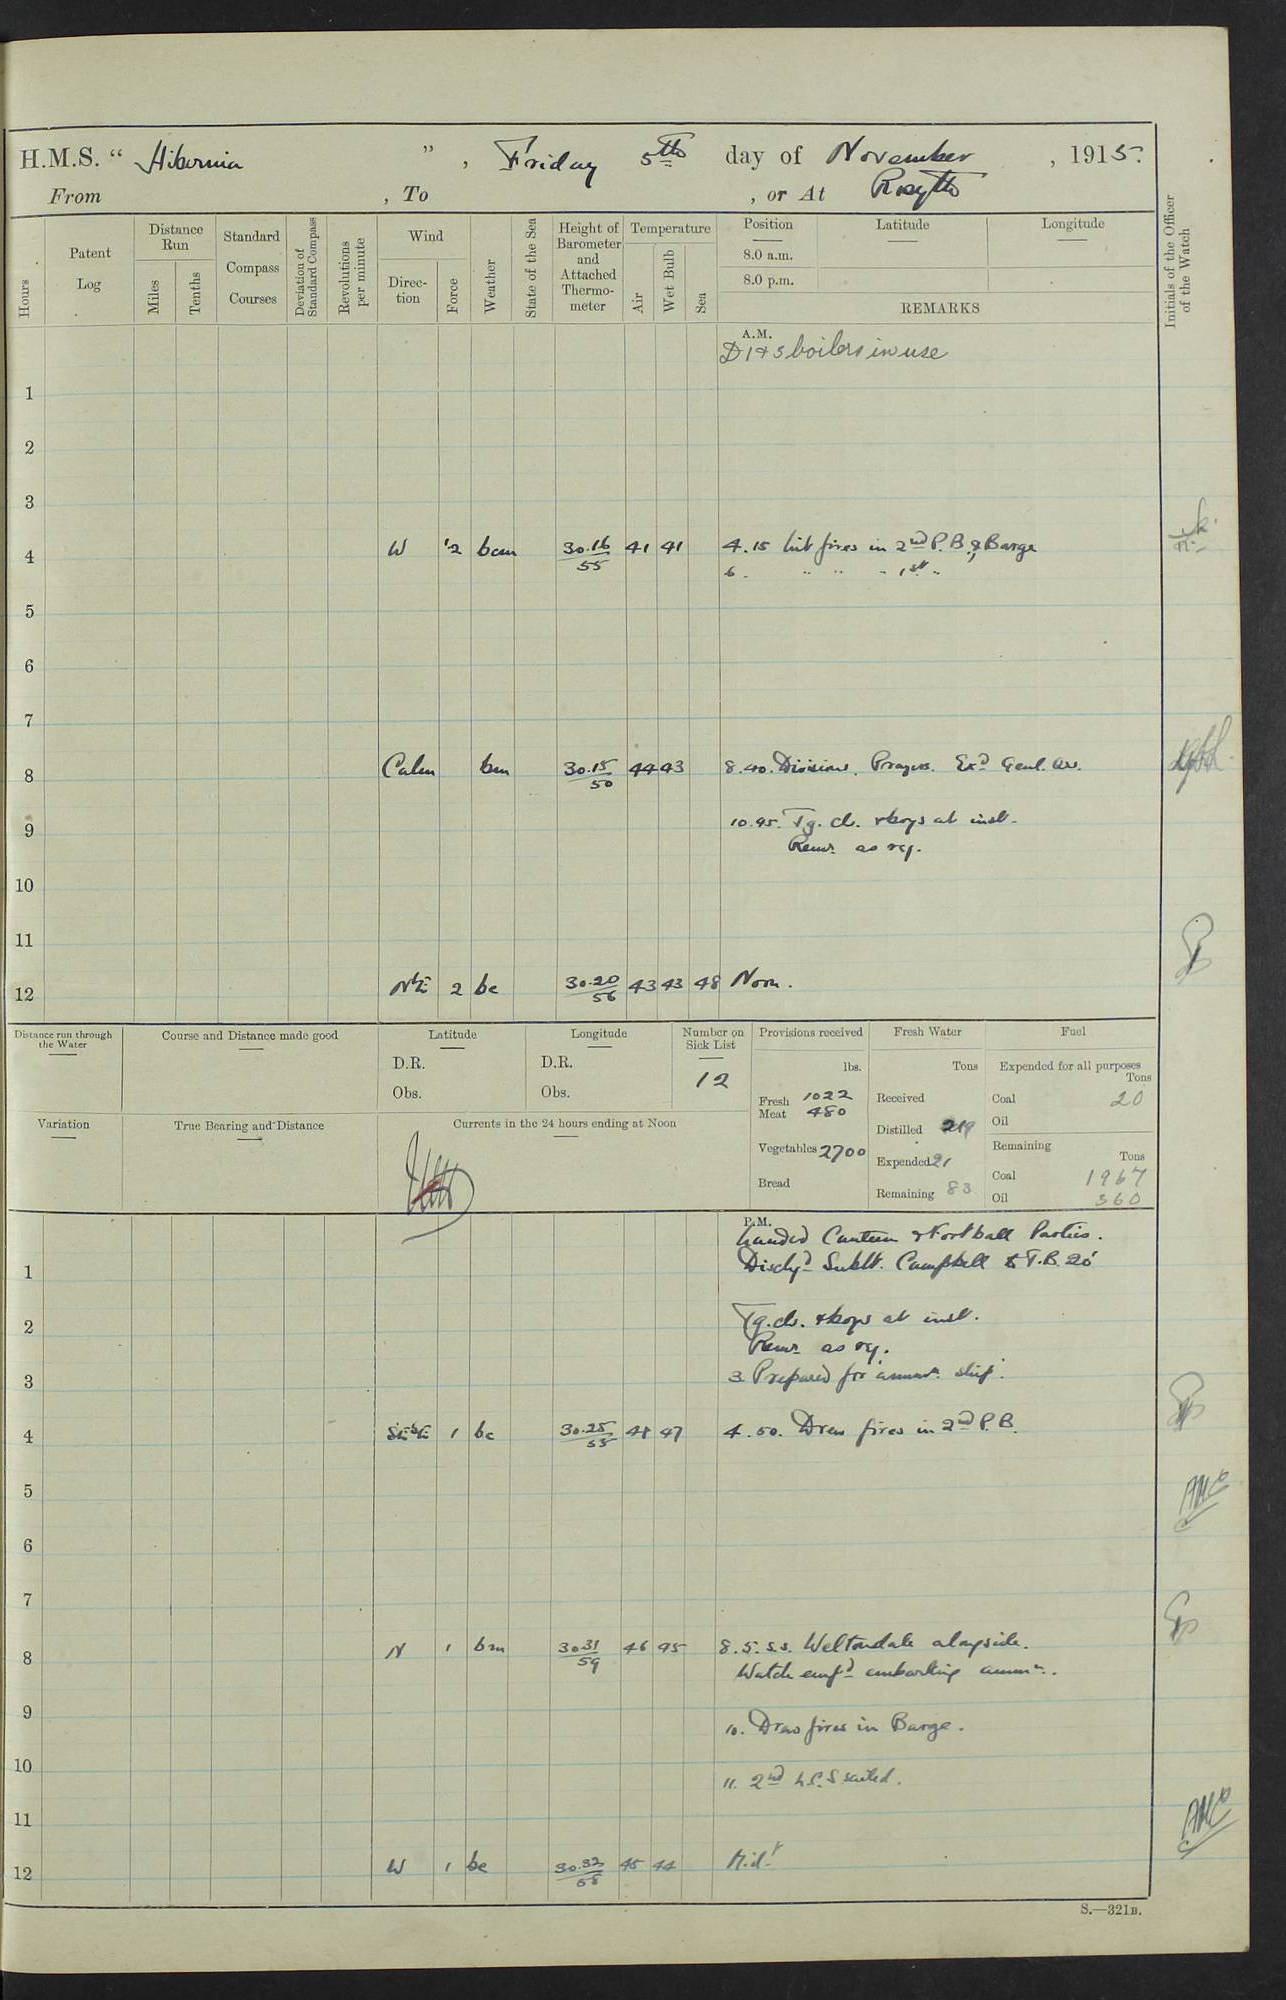 H.M.S. “ Hibernia ” , Friday 5th day of November , 1915.
From , To , or At Rosyth
Hours
Patent Log
Distance Run
Miles
Tenths
Standard Compass Courses
Deviation of Standard Compass
Revolutions per minute
Wind
Direction
Force
Weather
State of the Sea
Height of Barometer and Attached Thermometer
Temperature
Air
Wet Bulb
Sea
Position
8.0 a.m.
8.0 p.m.
Latitude
Longitude
REMARKS
Initials of the Officer of the Watch
A.M.
D 1 + 3 boilers in use
1
2
3
4 W 1-2 bcm 30.16 55 41 41 4.15 Lit fires in 2nd P.B. & Barge
6. " " " 1st "
5
6
7
8 Calm bm 30.15 50 44 43 8.40. Divisions. Prayers. Exd Genl. Qrs.
9 10.45. Tg. cl. & boys at inst.
Remr as req.
10
11
12 NbE 2 bc 30.20 56 43 43 48 Noon.
Distance run through the Water
Course and Distance made good
Latitude
D.R.
Obs.
Longitude
D.R.
Obs.
Number on Sick List
12
Provisions received
lbs.
Fresh Meat 1022 480
Vegetables 2700
Bread
Fresh Water
Tons
Received
Distilled 219
Expended 21
Remaining 83
Fuel
Expended for all purposes
Tons
Coal 20
Oil
Remaining
Tons
Coal 1967
Oil 360
Variation
True Bearing and Distance
Currents in the 24 hours ending at Noon
P.M.
Landed Canteen & Football Parties.
1 Dischgd Sublt. Campbell to T.B. 20
2 Tg. cls. & boys at inst.
Remr as req.
3 3. Prepared for ammn. ship.
4 SEbE 1 bc 30.25 55 48 47 4.50. Drew fires in 2nd P.B.
5
6
7
8 N 1 bm 30.31 59 46 45 8.5. s.s. Weltondale alongside.
Watch empd embarking ammn.
9 10. Drew fires in Barge.
10 11. 2nd L.C.S sailed.
11
12 W 1 bc 30.32 58 45 44 Midt
AMC
AMC
S.—321B.